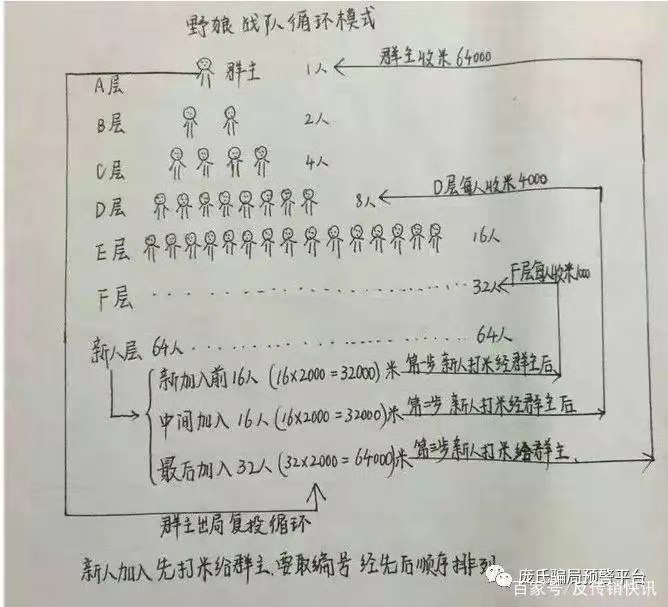 野娘战队循环模式
A层 群主 1人 群主收米64000
B层 2人
C层 4人
D层 8人 D层每人收米4000
E层 16人
F层 32人 F层每人收米1000
新人层 64人 64人
新加入前16人(16×2000=32000)米 第一步新人打米经群主后
中间加入16人(16×2000=32000)米 第二步新人打米经群主后
最后加入32人(32×2000=64000)米 第三步新人打米给群主
群主出局复投循环
新人加入先打米给群主、要取编号 经先后顺序排列
庞氏骗局预警平台
百家号/反传销快讯